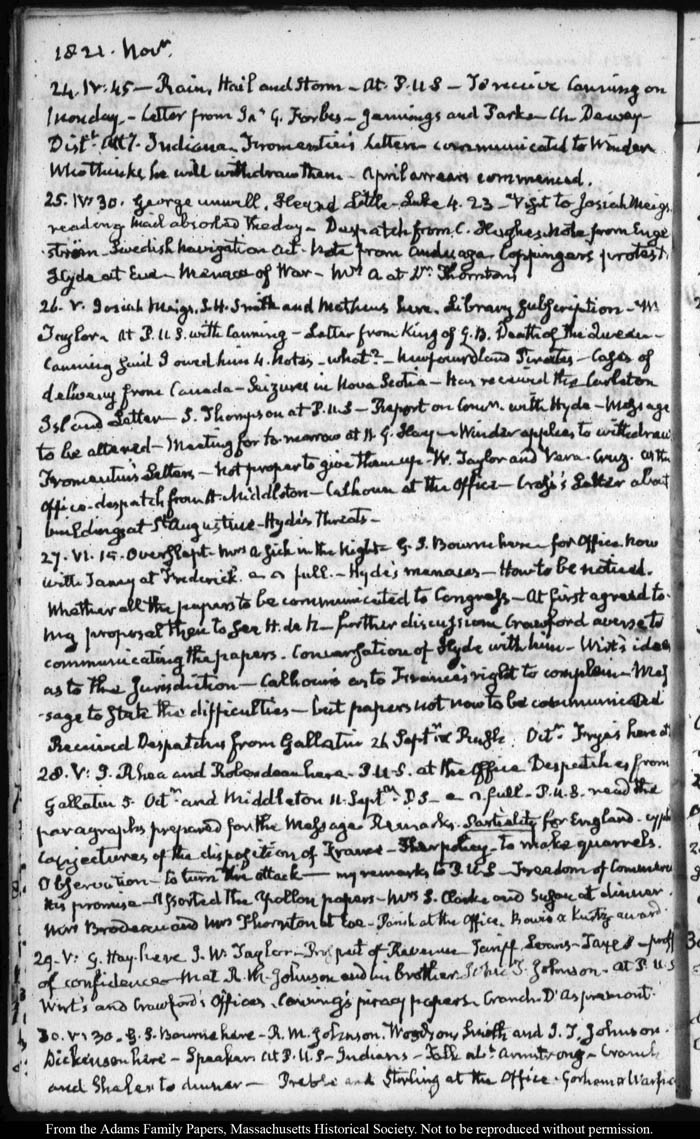 1821. Novr.
24. IV:45 — Rain, Hail and Storm — At P.U.S — To receive Canning on
Monday — Letter from Jas G. Forbes — Jennings and Parke — Ch. Dewey
Distt. Atty. Indiana. Fromentin's Letters communicated to Winder
Who thinks he will withdraw them — April arrears commenced.
25. IV:30. George unwell. Heard Little — Luke 4. 23 — Visit to Josiah Meigs
reading mail absorbed the day — Despatch from C. Hughes. Note from Enge
-ström — Swedish navigation Act. Note from Anduaga. Coppingers protest
Hyde at Eve — Menace of War — Mrs A at Dr Thornton's
26. V. Josiah Meigs, S. H. Smith and Mathews here. Library Subscription —
Taylor. At P.U.S. with Canning — Letter from King of G.B. Death of the Queen —
Canning said I owed him 4. Notes — what? — Newfoundland Pirates — Cases of
delivery from Canada — Seizures in Nova Scotia — Has received the Carleton
Island Letter — S. Thompson at P.U.S — Report on Conv. with Hyde — Message
to be altered — Meeting for to-morrow at 11. G. Hay — Winder applies to withdraw
Fromentin's Letters — Not proper to give them up — W. Taylor and Vera-Cruz. At the
Office. despatch from H. Middleton — Calhoun at the Office — Letter about
buildings at St Augustine — Hyde's threats —
27. VI. 15. Overslept. Mrs A sick in the Night — G. S. Bourne here — for Office. Now
with Taney at Frederick. full. — Hyde's menaces — How to be noticed.
Whether all the papers to be communicated to Congress — At first agreed to
my proposal then to see H. de N — further discussion Crawford averse to
communicating the papers. Conversation of Hyde with him — Wirt's ideas
as to the Jurisdiction — Calhoun's as to France's right to complain — Mes
-sage to State the difficulties — but papers not now to be communicated
Received Despatches from Gallatin 26 Septr. Octr. Fryes here
28. V: J. Rhea and Roberdeau here — P.U.S. at the Office Despatches from
Gallatin 5. Octr and Middleton 11. Septr. full — P.U.S. read the
paragraphs prepared for the Message. Remarks. Partiality for England —
Conjectures of the disposition of France — policy — to make quarrels.
Observation — to turn the attack — my remarks to P.U.S — Freedom of Commerce
His promise — Assorted the Apollon papers — Mrs S. Clarke and Susan at dinner
Mrs Brodeau and Mrs Thornton at Eve — at the Office.
29. V: G. Hay here J. W. Taylor — of Revenue Tariff Loans — Taxes —
of confidence — Met R. M. Johnson and his brother J. Johnson. At P.U.S
Wirt's and Crawford's Offices. Canning's piracy papers. Cranch. D'Aspremont.
30. V:30. G. S. Bourne here — R. M. Johnson. Woodson, Smith and J. T. Johnson
Dickenson here — Speaker. At P.U.S — Indians — Talk abt. Armstrong — Cranch
and Shaler to dinner — Preble and Sterling at the Office. Gorham &
From the Adams Family Papers, Massachusetts Historical Society. Not to be reproduced without permission.